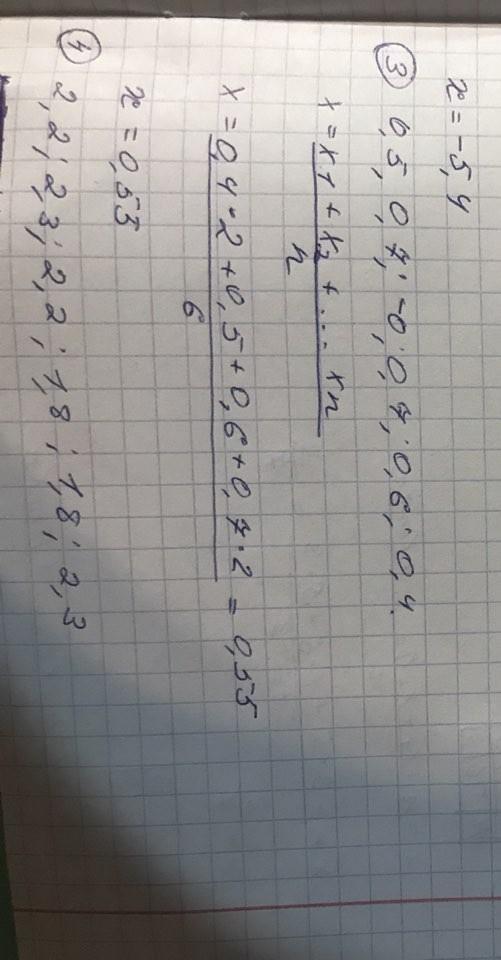 x = -5,4
③ 0,5, 0,7; -0,0,7; 0,6; 0,4.
x = x1 + x2 + ... xn
n
x = 0,4·2 + 0,5 + 0,6 + 0,7·2 = 0,55
6
x = 0,55
④
2,2; 2,3; 2,2; 1,8; 1,8; 2,3